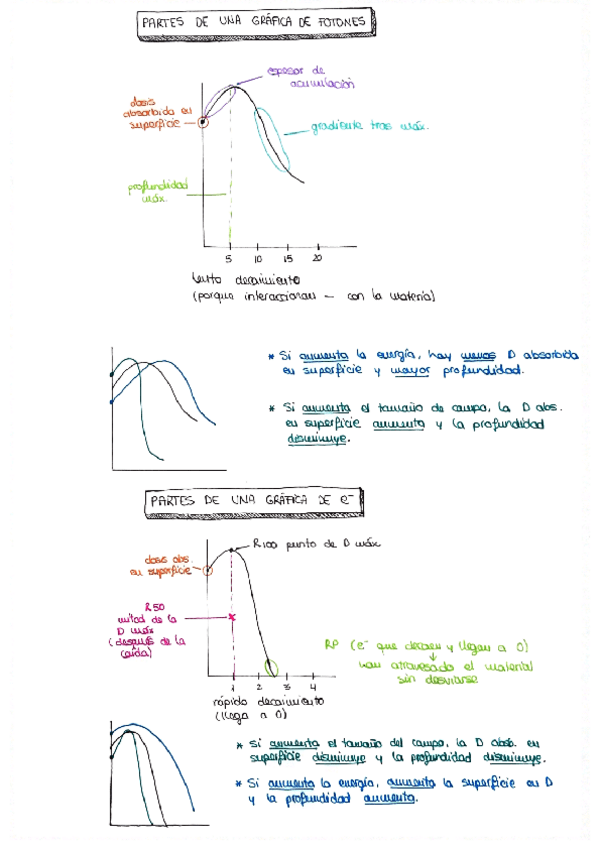 PARTES DE UNA GRÁFICA DE FOTONES
espesor de
acumulación
dosis
absorbida en
superficie
gradiente tras máx.
profundidad
máx.
5 10 15 20
lento decaimiento
(porque interaccionan - con la materia)
* Si aumenta la energía, hay menos D absorbida
en superficie y mayor profundidad.
* Si aumenta el tamaño de campo, la D abs.
en superficie aumenta y la profundidad
disminuye.
PARTES DE UNA GRÁFICA DE e-
R100 punto de D máx
dosis abs.
en superficie
R50
mitad de la
D máx
(después de la
caída)
RP (e- que decaen y llegan a 0)
han atravesado el material
sin desviarse
1 2 3 4
rápido decaimiento
(llega a 0)
* Si aumenta el tamaño del campo, la D absb. en
superficie disminuye y la profundidad disminuye.
* Si aumenta la energía, aumenta la superficie en D
y la profundidad aumenta.